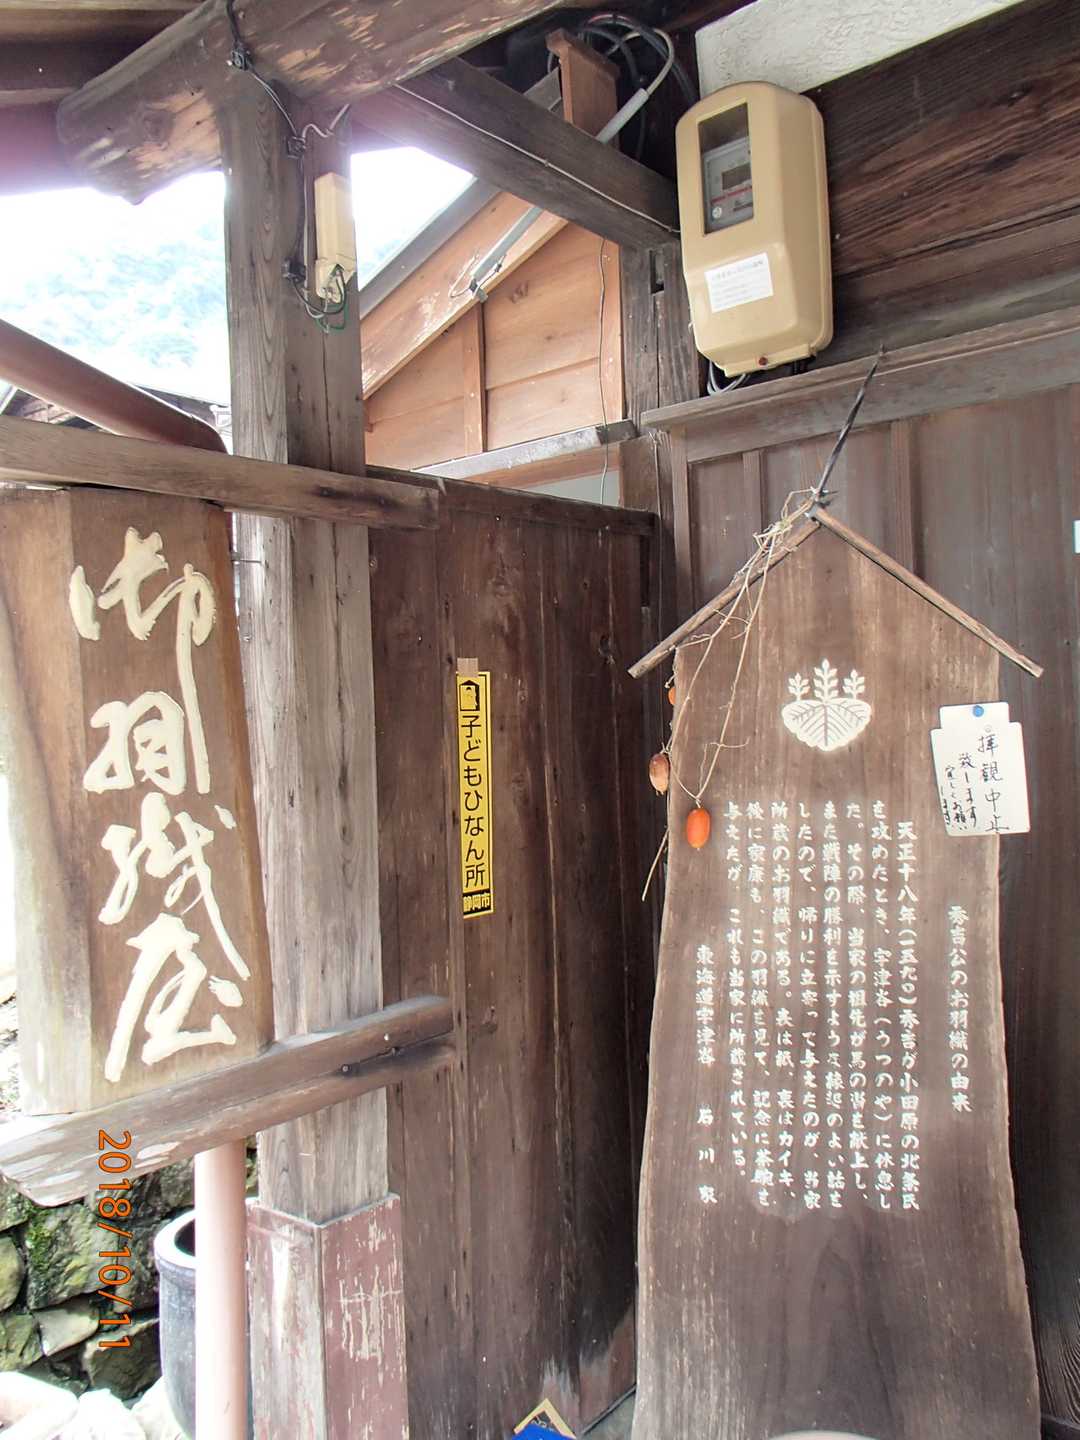 御羽織屋
子どもひなん所
静岡市
拝観中止
致します
宜しくお願い
します
秀吉公のお羽織の由来
天正十八年(一五九〇)秀吉が小田原の北条氏
を攻めたとき、宇津谷(うつのや)に休息し
た。その際、当家の祖先が馬の沓を献上し、
また戦陣の勝利を示すような縁起のよい話を
したので、帰りに立寄って与えたのが、当家
所蔵のお羽織である。表は紙、裏はカイキ、
後に家康も、この羽織を見て、記念に茶碗を
与えたが、これも当家に所蔵されている。
東海道宇津峯 石川家
2018/10/11